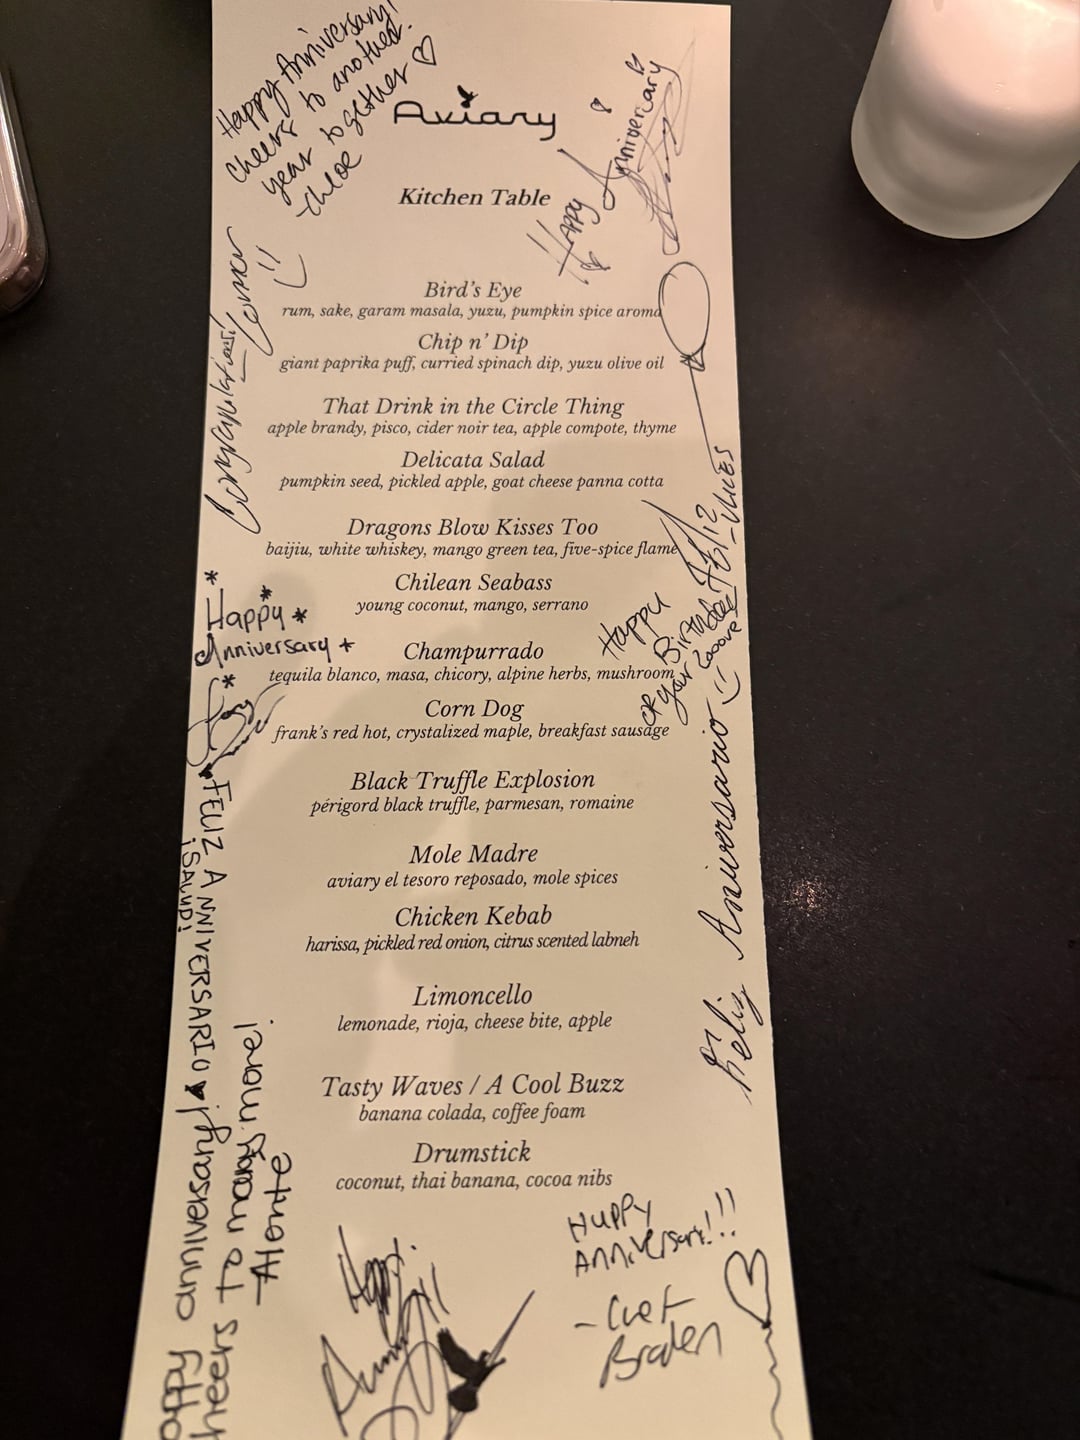 Happy Anniversary!
Cheers to another
year together ♡
-Chloe
Happy Anniversary
Aviary
Kitchen Table
Congratulations!
Bird's Eye
rum, sake, garam masala, yuzu, pumpkin spice aroma
Chip n' Dip
giant paprika puff, curried spinach dip, yuzu olive oil
That Drink in the Circle Thing
apple brandy, pisco, cider noir tea, apple compote, thyme
Delicata Salad
pumpkin seed, pickled apple, goat cheese panna cotta
Dragons Blow Kisses Too
baijiu, white whiskey, mango green tea, five-spice flame
Chilean Seabass
young coconut, mango, serrano
Happy
Anniversary
Happy
Birthday
of your
Champurrado
tequila blanco, masa, chicory, alpine herbs, mushroom
Corn Dog
frank's red hot, crystalized maple, breakfast sausage
Black Truffle Explosion
périgord black truffle, parmesan, romaine
Mole Madre
aviary el tesoro reposado, mole spices
Chicken Kebab
harissa, pickled red onion, citrus scented labneh
Limoncello
lemonade, rioja, cheese bite, apple
Tasty Waves / A Cool Buzz
banana colada, coffee foam
Drumstick
coconut, thai banana, cocoa nibs
FELIZ ANNIVERSARIO
¡SALUD!
Feliz Aniversario
anniversary!
to many more!
Happy
Anniversary!!!
Braden